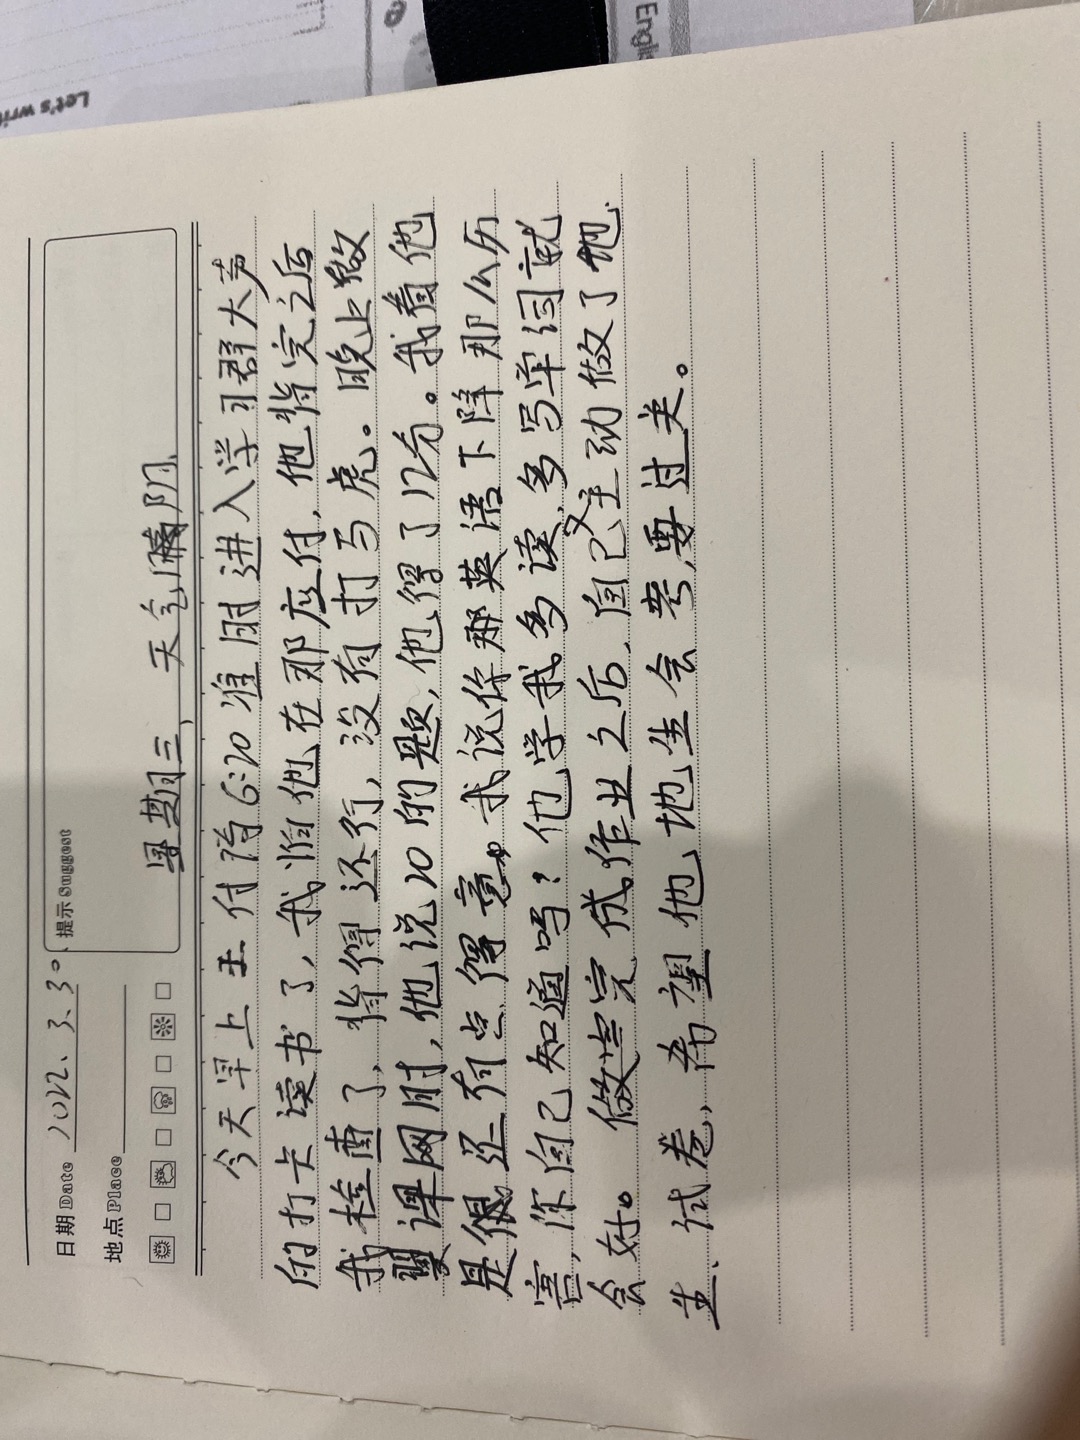 日期 Date 2022、3、30、
提示 Suggest
地点 Place
星期三、天气晴阴
今天早上 付詥6:20准时进入学习群大声
的打卡读书了，我怕他在那应付，他背完之后
我检查了，背得还行，没有打马虎。晚上做
翼课网时，他说20的题，他得了12分。我看他
是很 还有点得意。我说你那英语下降那么厉
害，你自己知道吗？他学我多读、多写单词就
会好。 做完成作业之后，自己又主动做了地、
生、试卷，希望他地生会考，要过关。
Let's wri
Englis